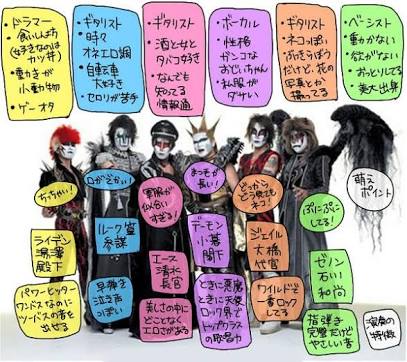 ドラマー
・食いしんぼ
(好きなのは
カツ丼)
・動きが
小動物
・ゲーオタ
・ギタリスト
・時々
オネエ口調
・自転車
大好き
・セロリが苦手
・ギタリスト
・酒と女と
タバコ好き
・なんでも
知ってる
情報通
・ボーカル
・性格
ガンコな
おじいちゃん
・私服が
ダサい
・ギタリスト
・ネコっぽい
・ぶっきらぼう
だけど、花の
写真とか
撮ってる
・ベーシスト
・動かない
・欲がない
・おっとりしてる
・美大出身
ちっちゃい!
口がでかい!
軍服が
似合い
すぎる!
まつ毛が
長い!
どっから
どう見ても
ネコ!
ぷにぷに
してる!
萌え
ポイント
ライデン
湯澤
殿下
ルーク篁
参謀
エース
清水
長官
デーモン
小暮
閣下
ジェイル
大橋
代官
ゼノン
石川
和尚
パワーヒッター
ワンバスなのに
ツーバスの音を
出せる
早弾き
泣き声
っぽい
美しさの中に
どことなく
エロさがある
ときに悪魔
ときに天使
ロック界で
トップクラス
の歌唱力
ワイルド
一番ロック
してる
指弾き
完璧だけど
やさしい音
演奏の
特徴